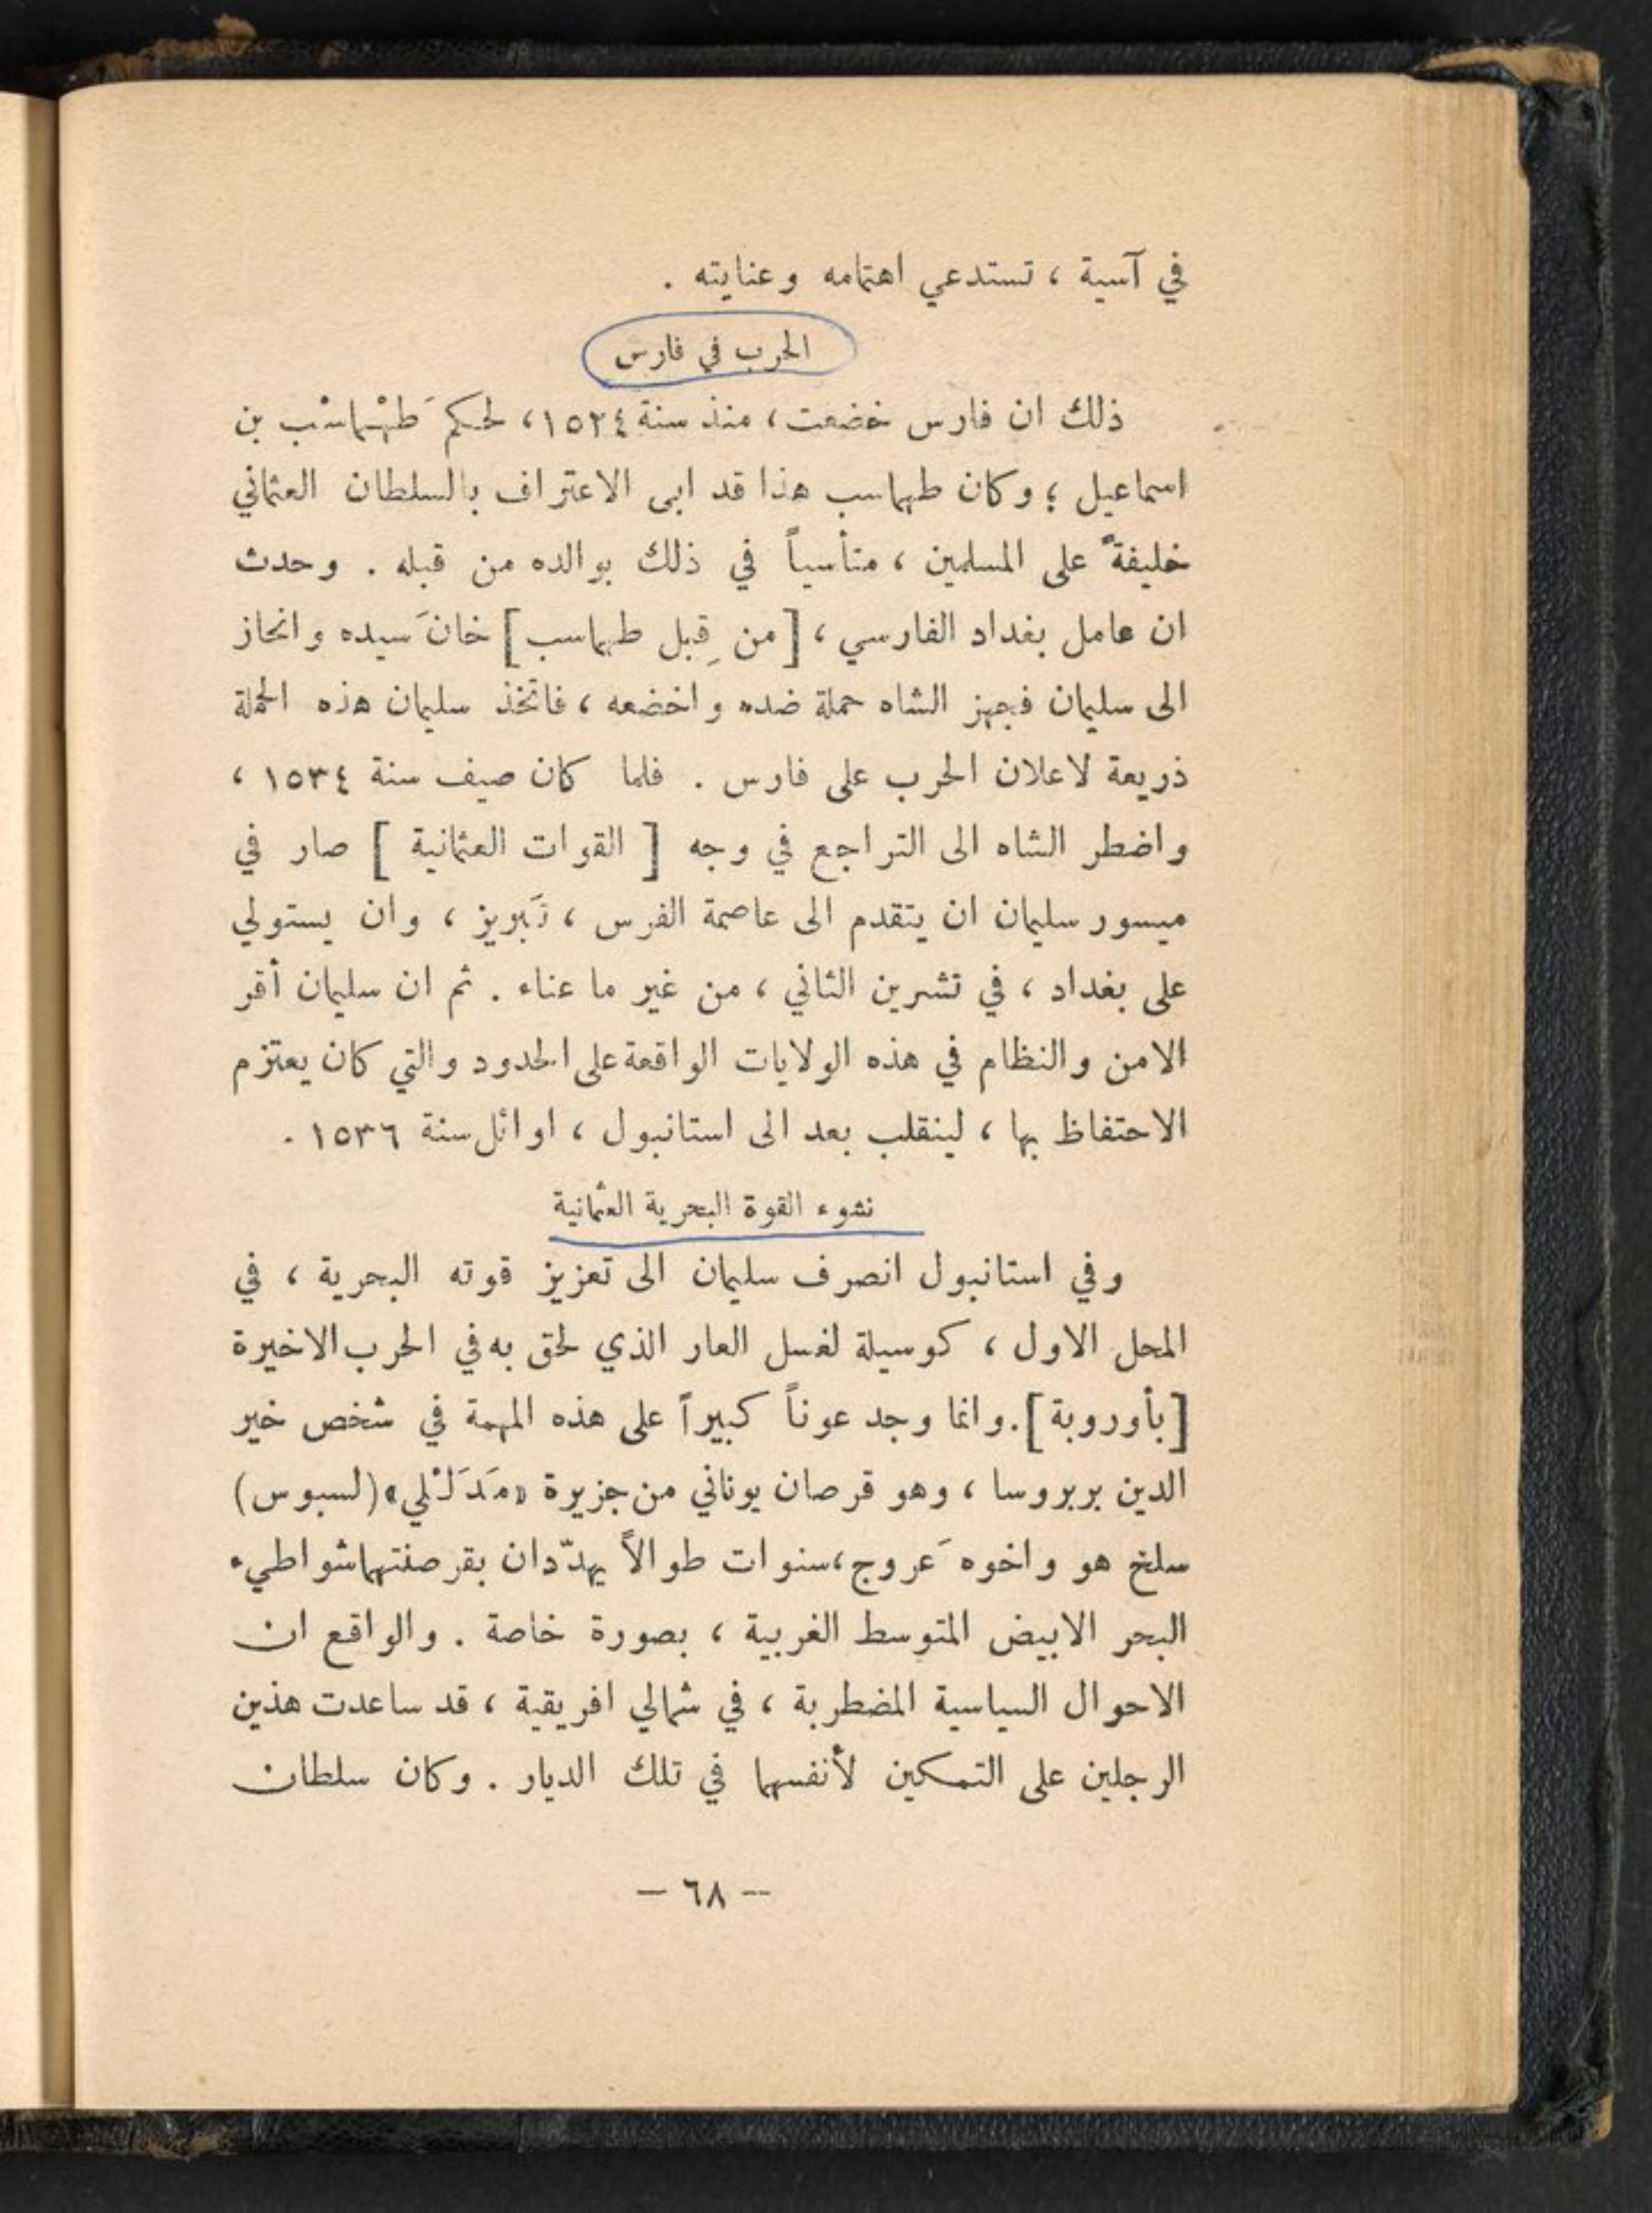 في آسية ، تستدعي اهتمامه وعنايته .
الحرب في فارس
ذلك ان فارس خضعت ، منذ سنة ١٥٢٤ ، لحكم طَهْماسْب بن
اسماعيل ؛ وكان طهماسب هذا قد ابى الاعتراف بالسلطان العثماني
خليفةً على المسلمين ، متأسياً في ذلك بوالده من قبله . وحدث
ان عامل بغداد الفارسي ، [ من قِبل طهماسب ] خانَ سيده وانحاز
الى سليمان فجهز الشاه حملة ضده واخضعه ، فاتخذ سليمان هذه الحملة
ذريعة لاعلان الحرب على فارس . فلما كان صيف سنة ١٥٣٤ ،
واضطر الشاه الى التراجع في وجه [ القوات العثمانية ] صار في
ميسور سليمان ان يتقدم الى عاصمة الفرس ، تَبريز ، وان يستولي
على بغداد ، في تشرين الثاني ، من غير ما عناء . ثم ان سليمان أقر
الامن والنظام في هذه الولايات الواقعة على الحدود والتي كان يعتزم
الاحتفاظ بها ، لينقلب بعد الى استانبول ، اوائل سنة ١٥٣٦ .
نشوء القوة البحرية العثمانية
وفي استانبول انصرف سليمان الى تعزيز قوته البحرية ، في
المحل الاول ، كوسيلة لغسل العار الذي لحق به في الحرب الاخيرة
[ بأوروبة ] . وانما وجد عوناً كبيراً على هذه المهمة في شخص خير
الدين بربروسا ، وهو قرصان يوناني من جزيرة «مَدَلـْلي» (لسبوس)
سلخ هو واخوه عَروج ، سنوات طوالاً يهدّدان بقرصنتهما شواطيء
البحر الابيض المتوسط الغربية ، بصورة خاصة . والواقع ان
الاحوال السياسية المضطربة ، في شمالي افريقية ، قد ساعدت هذين
الرجلين على التمكين لأنفسهما في تلك الديار . وكان سلطان
— ٦٨ —